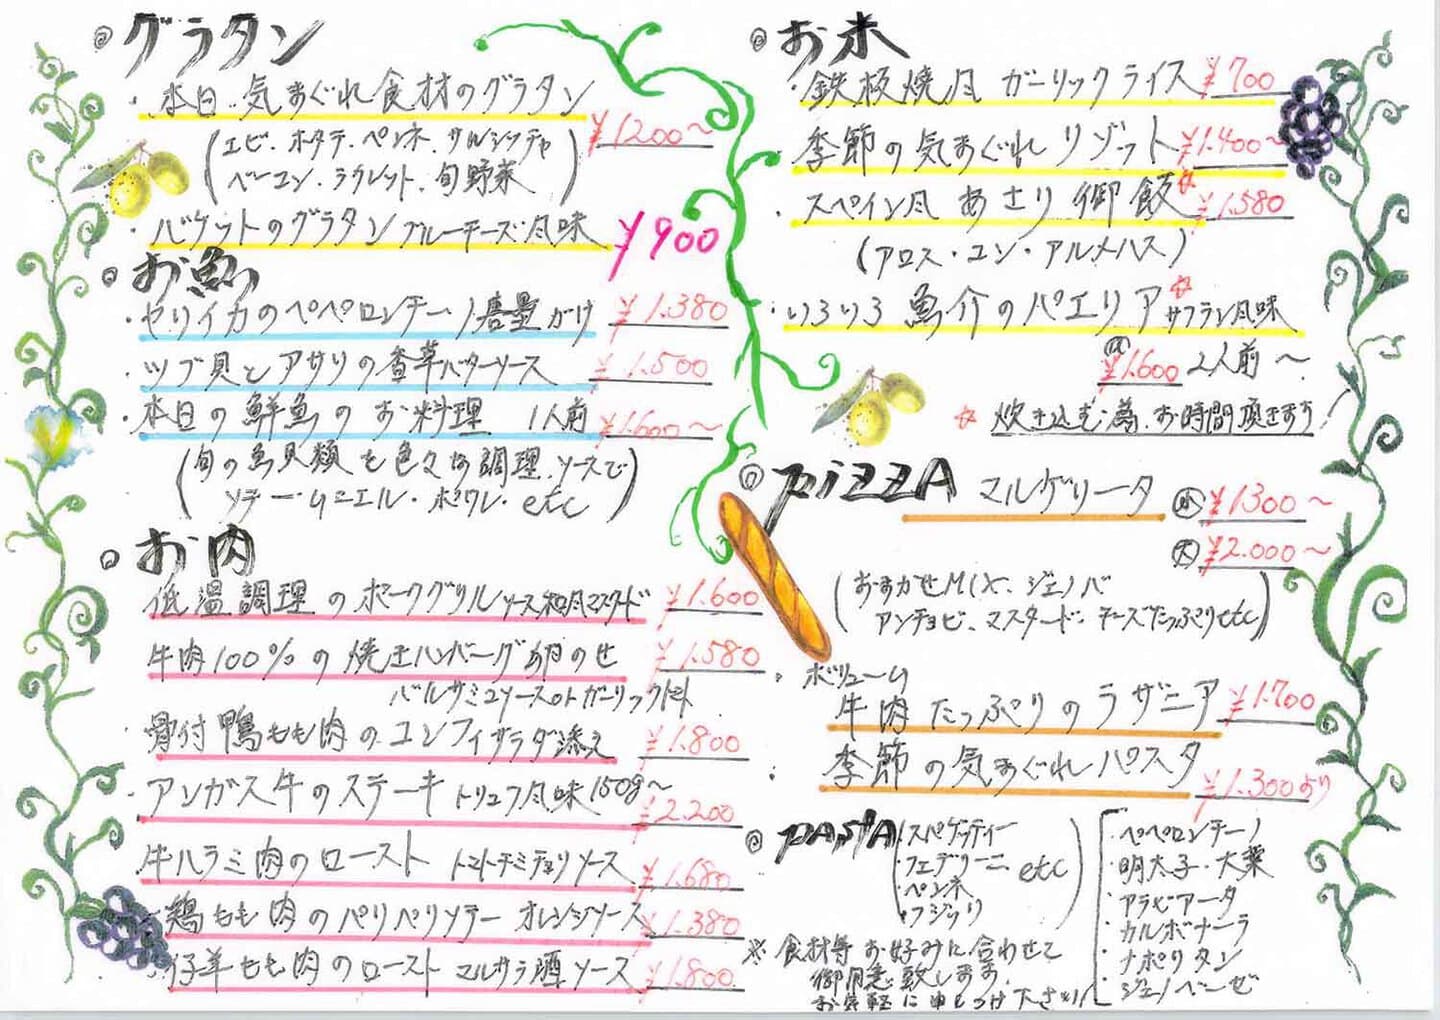 グラタン
・本日 気まぐれ食材のグラタン
¥1200〜
(エビ・ホタテ・ペンネ・サルシッチャ
ベーコン・ラクレット・旬野菜)
・バケットのグラタン ブルーチーズ風味 ¥900
お魚
・ヤリイカのペペロンチーノ 唐墨がけ ¥1.380
・ツブ貝とアサリの香草バターソース ¥1.500
・本日の鮮魚のお料理 1人前 ¥1.600〜
(旬の魚貝類を色々な調理・ソースで
ソテー・ムニエル・ポワレ・etc)
お肉
低温調理のポークグリル ソース和風マスタード ¥1.600
牛肉100%の焼きハンバーグ 卵のせ ¥1.580
バルサミコソース or ガーリックトマト
骨付鴨もも肉のコンフィ サラダ添え ¥1.800
・アンガス牛のステーキ トリュフ風味 150g〜 ¥2.200
牛ハラミ肉のロースト トマトチミチュリソース ¥1.680
鶏もも肉のパリパリソテー オレンジソース ¥1.380
・仔羊もも肉のロースト マルサラ酒ソース ¥1.800
お米
・鉄板焼風 ガーリックライス ¥700
季節の気まぐれリゾット ¥1.400〜
・スペイン風 あさり御飯☆ ¥1.580
(アロス・コン・アルメハス)
・いろいろ魚介のパエリア☆ サフラン風味
¥1.600 2人前〜
☆ 炊き込む為 お時間頂きます
pizzA マルゲリータ 小 ¥1300〜
大 ¥2.000〜
(おまかせMIX、ジェノバ
アンチョビ、マスタード・チーズたっぷりetc)
・ボリューム
牛肉たっぷりのラザニア ¥1.700
・季節の気まぐれパスタ ¥1.300より
pAstA
(スパゲッティー
・フェデリーニ
・ペンネ
・フジッリ
etc)
・ペペロンチーノ
・明太子・大葉
・アラビアータ
・カルボナーラ
・ナポリタン
・ジェノベーゼ
※ 食材等 お好みに合わせて
御用意致します。
お気軽に申しつけ下さい!